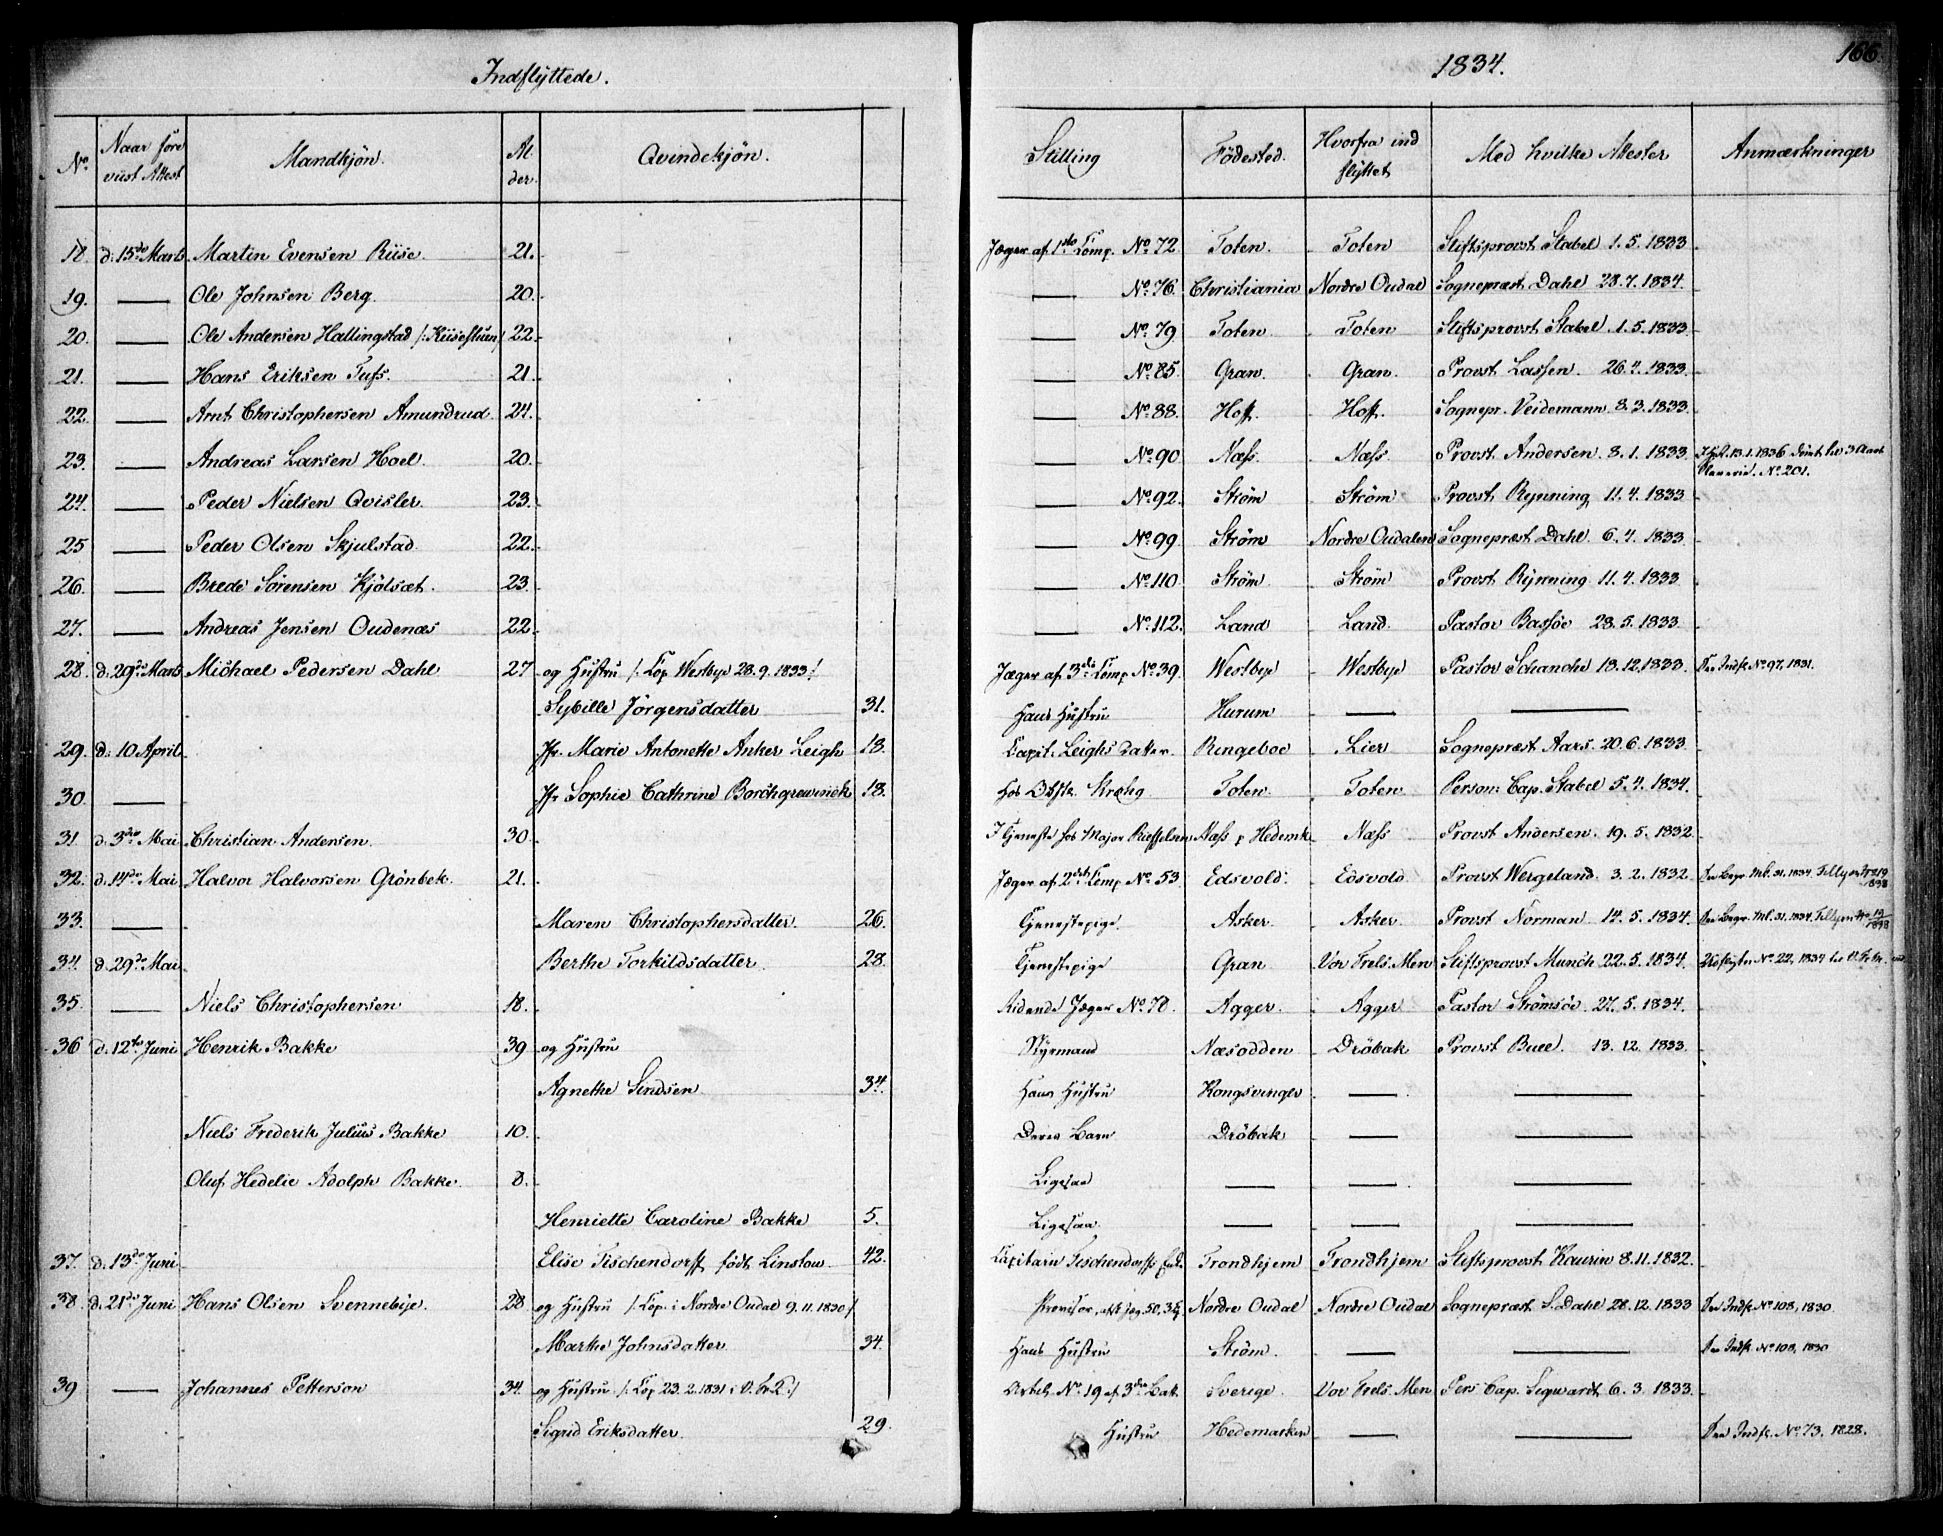 Indflyttede. 1834. 166.
No Naar fore viist Attest Mandkjøn. Al der. Qvindekjøn. Stilling Födested. Hvorfra ind flyttet Med hvilke Attester Anmærkninger
18. d. 15de Marts Martin Evensen Riise 21. Jæger af 1ste Comp. No 72. Toten. Toten Stiftsprovst Stabel 1. 5. 1833
19. — Ole Johnsen Berg 20. — No 76. Christiania Nordre Oudal Sognepræst Dahl 28. 7. 1834.
20. — Ole Andersen Hallingstad 22. — No 79 Toten. Toten Stiftsprovst Stabel 1. 5. 1833
21. — Hans Eriksen Tufs. 21. — No 85. Gran. Gran. Provst Lassen. 26. 4. 1833.
22. — Arnt Christophersen Amundrud 24. — No 88. Hoff. Hoff. Sognepr. Veidemann 8. 3. 1833.
23. — Andreas Larsen Hoel. 20. — No 90 Næss. Næss. Provst Andersen. 8. 1. 1833. 13. 1. 1836 No 201.
24. — Peder Nielsen Qvisler. 23. — No 92. Ström Ström Provst Rynning 11. 4. 1833
25 — Peder Olsen Skjulstad 22. — No 99 Ström Nordre Oudalen Sognepræst Dahl. 6. 4. 1833.
26. — Brede Sörensen Kjölsæt. 23. — No 110. Ström Ström Provst Rynning 11. 4. 1833
27. — Andreas Jensen Oudenæs 22. — No 112. Land Land. Pastor Bassöe 28. 5. 1833.
28. d. 29de Marts Michael Pedersen Dahl 27 og Hustru /: Cop. Westbye 28. 9. 1833 :/ Jæger af 3die Comp. No 39. Westbye Westbye Pastor Schanche 18. 12. 1833. See Indfl. No 97. 1831.
Sybille Jörgensdatter 31. Hans Hustru Hurum — —
29. d. 10 April Jfr. Marie Antonette Anker Leigh 18. Capit. Leighs Datter. Ringeboe Lier Sognepræst Aars. 20. 6. 1833.
30. — Jfr Sophie Cathrine Borchgrewinck 18. Hos Obstl. Toten Toten Person. Cap. Stabel 5. 4. 1834.
31 d. 3die Mai Christian Andersen. 30. I Tjeneste hos Major Næss p Hedemk Næss Provst Andersen. 19. 5. 1832.
32. d. 14de Mai Halvor Halvorsen Grönbek. 21. Jæger af 2det Comp No 53. Edsvold. Edsvold Provst Wergeland. 3. 2. 1832
33. — Maren Christophersdatter. 26. Tjenestepige. Asker. Asker. Provst Norman 14. 5. 1834.
34. d. 29de Mai Berthe Torkildsdatter 28. Tjenestepige Gran Vor Frels. Men Stiftsprovst Munch 22. 5. 1834. No 22, 1834
35. — Niels Christophersen 18. Ridende Jæger No 78. Agger. Agger Pastor Strömsöe 27. 5. 1834.
36 d. 12te Juni Henrik Bakke 39 og Hustru Styrmand Næsodden Dröbak Provst Buee. 13. 12. 1833.
Agnethe Sindsen 34. Hans Hustru Kongsvinger — —
Niels Frederik Julius Bakke 10. Deres Barn Dröbak — —
Oluf Hedelie Adolph Bakke 8. Ligesaa — — —
Henriette Caroline Bakke 5. Ligesaa. — — —
37. d. 13de Juni Elise Tischendorff födt Linstow. 42. Capitain Tischendorffs Trondhjem Trondhjem Stiftsprovst Kaurin 8. 11. 1832.
38. d. 21de Juni Hans Olsen Svennebye. 28 og Hustru /: Cop. i Nordre Oudal 9. 11. 1830 :/ Nordre Oudal Nordre Oudal Sognepræst S. Dahl 28. 12. 1833 See Indfl. No 108, 1830
Marthe Johnsdatter 34. Hans Hustru Ström. — — See Indfl. No 108, 1830
39 — Johannes Petterson 34. og Hustru /: Cop 23. 2. 1831 i V. Fr. K :/ No 19 af 3die Bat. Sverige. Vor Frels. Men Pers Cap. Sigwardt 6. 3. 1833.
Sigrid Eriksdatter. 29. Hustru Hedemarken — — See Indfl. No 73. 1828.